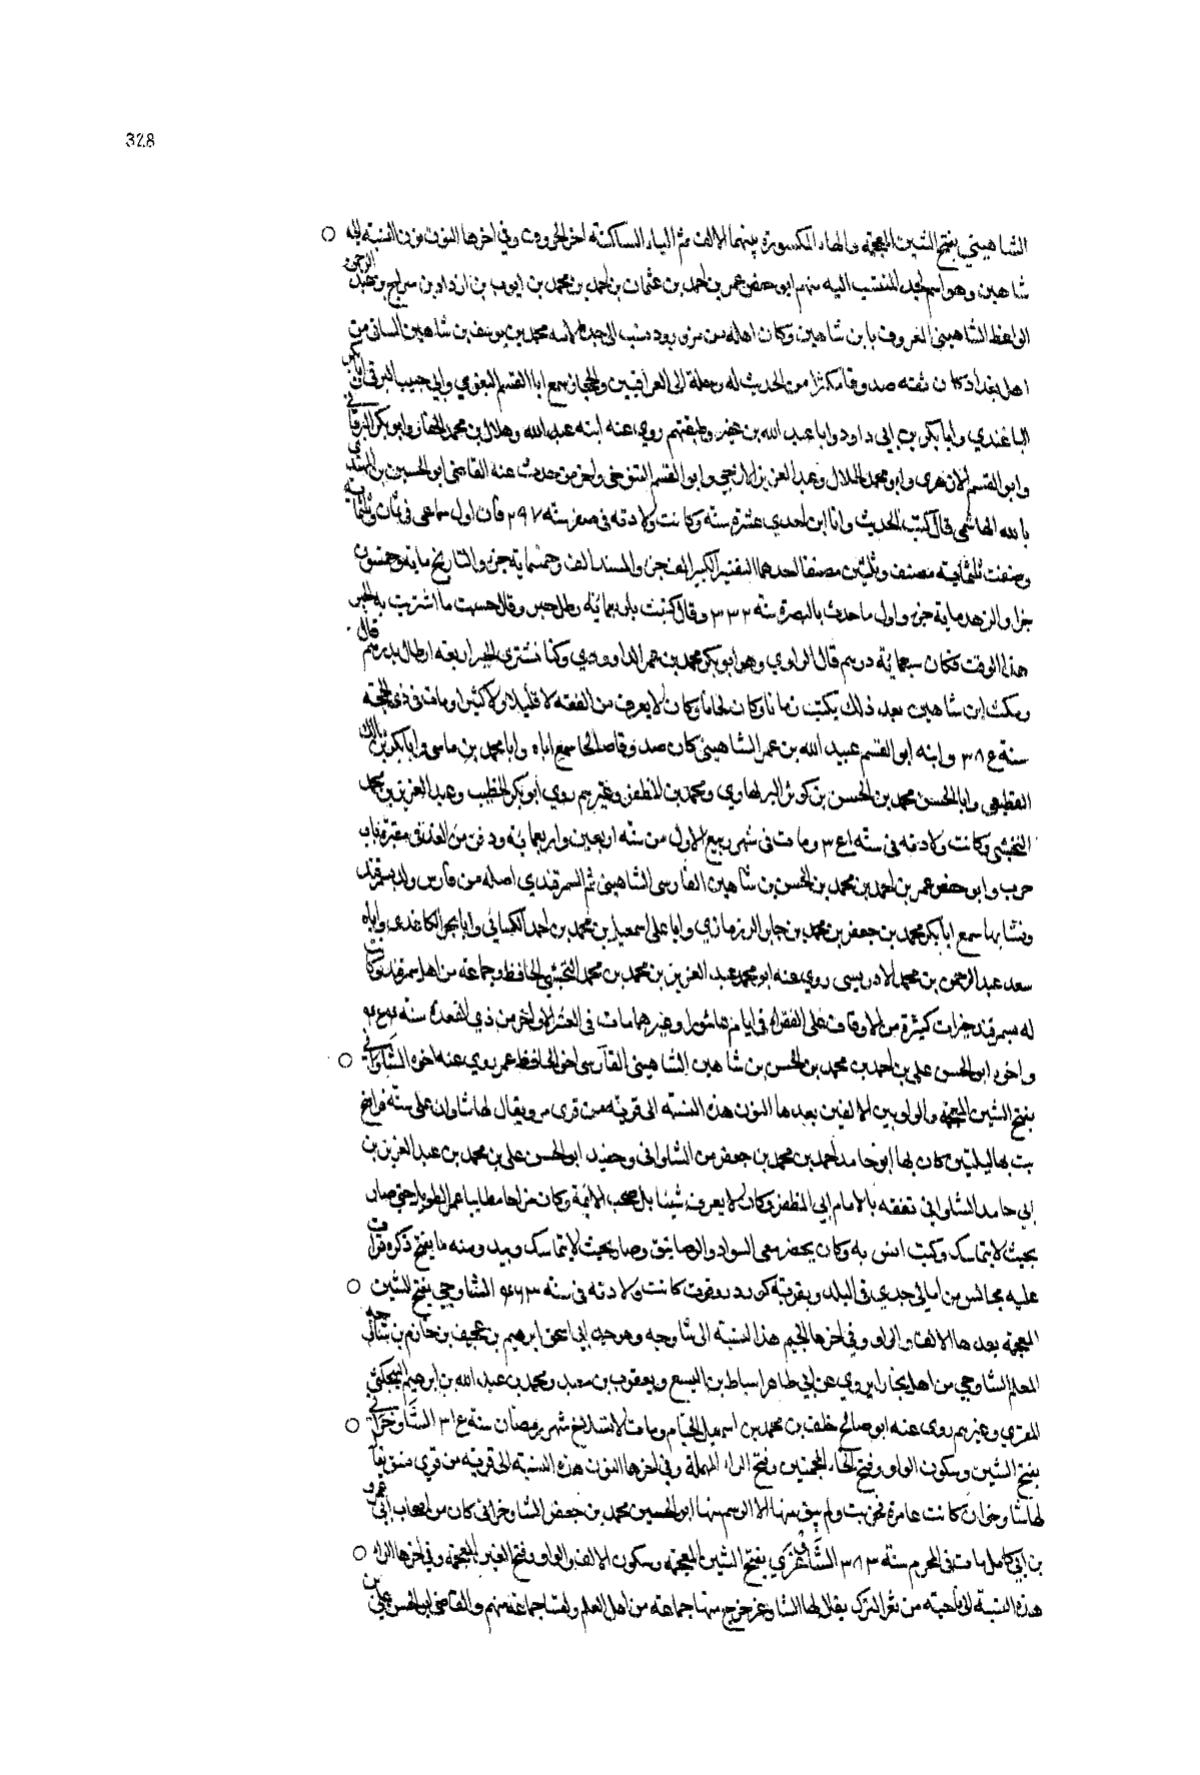 328
الشاهيني بفتح الشين المعجمة والهاء المكسورة بينهما الالف ثم الياء الساكنة اخر الحروف وفي اخرها النون هذه النسبة الى
شاهين وهو اسم لجد المنتسب اليه منهم ابو حفص عمر بن احمد بن عثمان بن احمد بن محمد بن ايوب بن ازداد بن سراج بن عبد الرحمن
الواعظ الشاهيني المعروف بابن شاهين وكان اصله من مرو رود ونسب الى جده لامه محمد بن يوسف بن شاهين الشيباني من
اهل بغداد كان ثقة صدوقا مكثرا من الحديث له رحلة الى العراقيين والحجاز سمع ابا القسم البغوي وابي حبيب البرتي وابا بكر
الباغندي وابا بكر بن ابي داود وابا عبد الله بن عفير وطبقتهم روى عنه ابنه عبيد الله وهلال بن محمد الحفار وابو بكر البرقاني
وابو القسم الازهري وابو محمد الخلال وعبد العزيز الازجي وابو القسم التنوخي واخر من حدث عنه القاضي ابو الحسين بن المهتدي
بالله الهاشمي قال كتبت الحديث وانا ابن احدى عشرة سنة وكانت ولادته في صفر سنة ٢٩٧ قال اول سماعي في ثمان وثلثماية
وصنفت ثلثماية مصنف وثلثين مصنفا احدهما التفسير الكبير الف جزء والمسند الف وخمسماية جزء والتاريخ ماية وخمسون
جزا والزهد ماية جزء واول ما حدث بالبصرة سنة ٣٣٢ وقال كتبت باربعمائة رطل حبر وقال حسبت ما اشتريت به الحبر
هذا الوقت فكان سبعمائة درهم قال الراوي وهو ابو بكر محمد بن عمر الداوودي وكنا نشتري الحبر اربعة ارطال بدرهم قال
ومكث ابن شاهين بعد ذلك يكتب زمانا وكان لحانا وكان لا يعرف من الفقه لا قليلا ولا كثيرا ومات في ذي الحجة
سنة ٣٨٤ وابنه ابو القسم عبيد الله بن عمر الشاهيني كان صدوقا صالحا سمع اباه وابا محمد بن ماسي وابا بكر بن مالك
القطيعي وابا الحسن محمد بن الحسن بن كوثر البربهاري ومحمد بن المظفر وغيرهم روى ابو بكر الخطيب وعبد العزيز بن محمد
النخشبي وكانت ولادته في سنة ٣٤١ ومات في شهر ربيع الاول من سنة اربعين واربعماية ودفن من الغد في مقبرة باب
حرب وابو حفص عمر بن احمد بن محمد بن الحسن بن شاهين الفارسي الشاهيني ثم السمرقندي اصله من فارس ولد بسمرقند
ونشا بها سمع ابا بكر محمد بن جعفر بن محمد بن جابر الرزمازي وابا علي اسمعيل بن محمد بن احمد الكشاني وابا بحر الكاغدي واباه
سعد عبد الرحمن بن محمد الادريسي روى عنه ابو محمد عبد العزيز بن محمد بن محمد النخشبي الحافظ وجماعة من اهل سمرقند وكانت
له بسمرقند خيرات كثيرة من الاوقاف على الفقراء في ايام عاشورا وغيرهما مات في العشر الاواخر من ذي القعدة سنة ٤٥٤
واخوه ابو الحسن علي بن احمد بن محمد بن الحسن بن شاهين الشاهيني الفارسي اخو الحافظ عمر روى عنه اخوه الشاواني
بفتح الشين المعجمة والواو بين الالفين بعدها النون هذه النسبة الى قرية من قرى مرو يقال لها شاوان على ستة فراسخ
بت بها ليلتين كان بها ابو حامد احمد بن محمد بن جعفر من الشاواني وحفيده ابو الحسن علي بن محمد بن عبد العزيز بن
ابي حامد الشاواني تفقه بالامام ابي المظفر وكان لا يعرف شيئا بل صحب الائمة وكان مزاحا مطايبا عمر الطويل حتى صار
بحيث لا يتماسك وكنت انس به وكان يحضر معي وصار بحيث لا يتماسك ومنه ما يفتح ذكره قرات
عليه مجالس من امالي جدي في البلد وبقريته كانت ولادته في سنة ٤٦٣ الشاوجي بفتح الشين
المعجمة بعدها الالف والواو وفي اخرها الجيم هذا النسبة الى شاوجه وهو جد ابي اسحق ابرهيم بن عجيف بن خازم بن شاوجه
المعلم الشاوجي من اهل بخارا يروي عن ابي طاهر اسباط بن اليسع ويعقوب بن معبد ومحمد بن عبد الله بن ابرهيم
المقري وغيرهم روى عنه ابو صالح خلف بن محمد بن اسمعيل الخيام ومات لانسلاخ شهر رمضان سنة ٣١٤ الشاوخراني
بفتح الشين وسكون الواو وفتح الخاء المعجمتين وفتح الراء المهملة وفي اخرها النون هذه النسبة الى قرية من قرى نسف يقال
لها شاوخران كانت عامرة فخربت ولم يبق منها الا الرسم منها ابو الحسين محمد بن جعفر الشاوخراني كان من اصحاب ابي عمرو
بن ابي كامل مات في المحرم سنة ٣٨٣ الشاوغري بفتح الشين المعجمة وسكون الالف والواو وفتح الغين المعجمة وفي اخرها الراء
هذه النسبة الى ناحية من ثغر الترك يقال لها الشاوغر خرج منها جماعة من اهل العلم ولقينا جماعة منهم والقاضي ابو الحسن علي بن